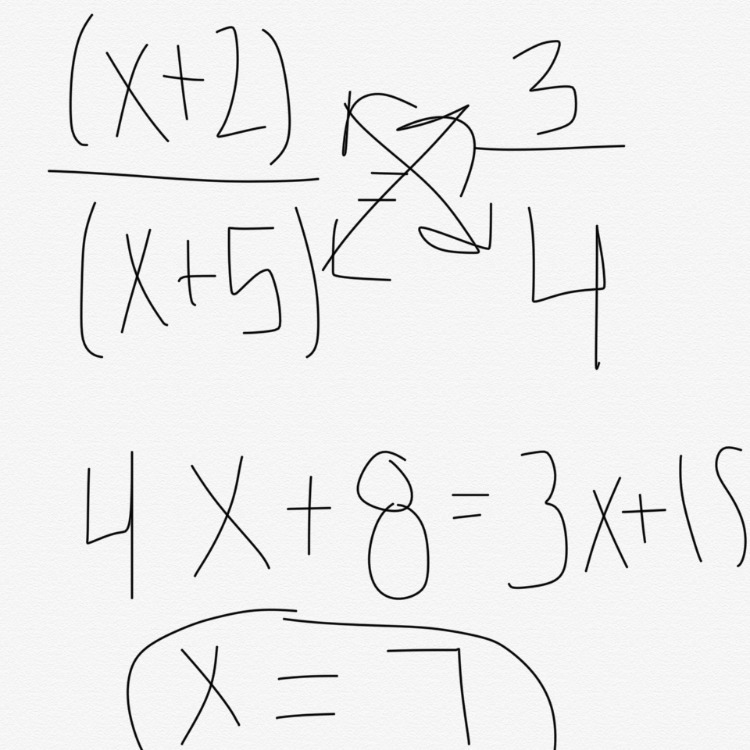 (x+2) / (x+5) = 3 / 4
4x+8=3x+15
x=7